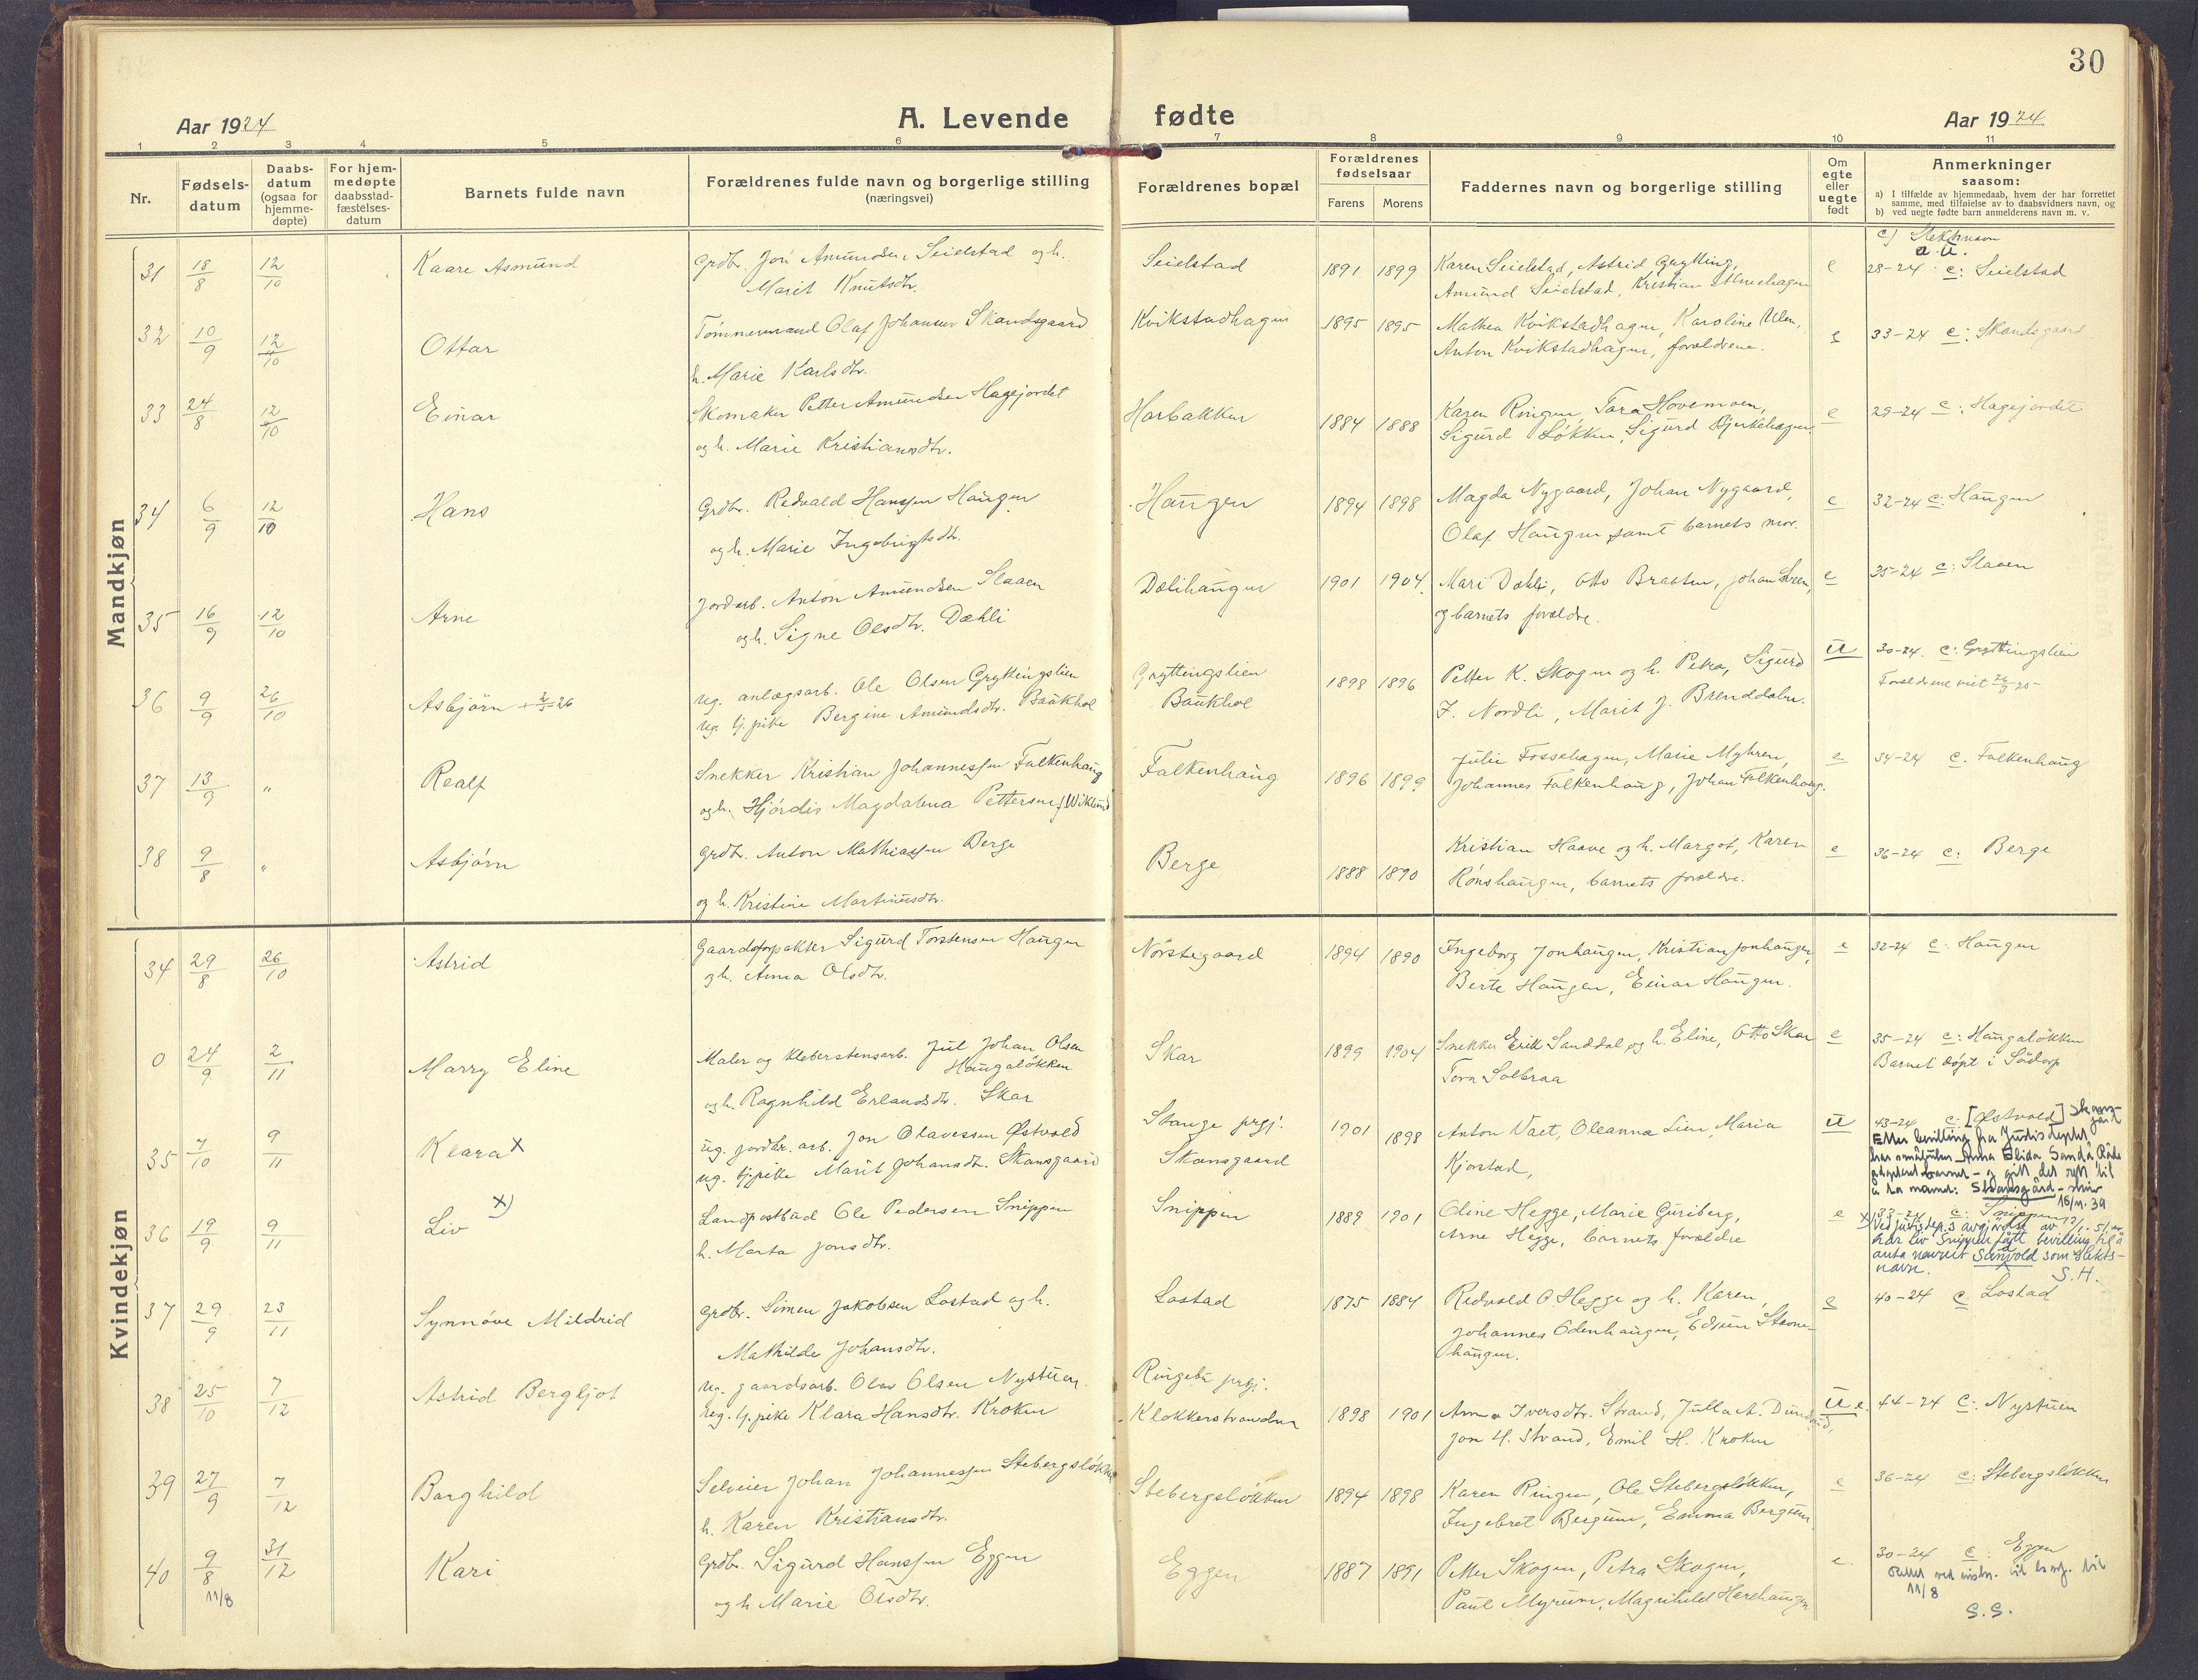 30
Aar 1924
A. Levende fødte
Aar 1924
1 2 3 4 5 6 7 8 9 10 11
Nr.
Fødsels-
datum
Daabs-
datum
(ogsaa for
hjemme-
døpte)
For hjem-
medøpte
daabsstad-
fæstelses-
datum
Barnets fulde navn
Forældrenes fulde navn og borgerlige stilling
(næringsvei)
Forældrenes bopæl
Forældrenes
fødselsaar
Farens Morens
Faddernes navn og borgerlige stilling
Om
egte
eller
uegte
født
Anmerkninger
saasom:
a) I tilfælde av hjemmedaab, hvem der har forrettet
samme, med tilføielse av to daabsvidners navn, og
b) ved uegte fødte barn anmelderens navn m. v.
c) Slektsnavn
Mandkjøn
31 18/8 12/10 Kaare Asmund
Grdbr. Jon Amundsen Seielstad og h.
Marit Knutsdtr.
Seielstad 1891 1899
Karen Seielstad, Astrid Grytting,
Amund Seielstad, Kristian
e 28-24 c: Seielstad
32 10/9 12/10 Ottar
Tømmermand Olaf Johansen Skandsgaard
h. Marie Karlsdtr.
Kvikstadhagen 1895 1895
Mathea Kvikstadhagen, Karoline Ulen,
Anton Kvikstadhagen, forældrene.
e 33-24 c: Skandsgaard
33 24/8 12/10 Einar
Skomaker Petter Amundsen Hagejordet
og h. Marie Kristiansdtr.
Horbakken 1884 1888
Karen Ringen, Tora Hovemoen,
Sigurd Løkken, Sigurd Bjerkehagen
e 29-24 c: Hagejordet
34 6/9 12/10 Hans
Grdbr. Redvald Hanssen Haugen
og h. Marie Ingebrigtsdtr.
Haugen 1894 1898
Magda Nygaard, Johan Nygaard,
Olaf Haugen samt barnets mor.
e 32-24 c: Haugen
35 16/9 12/10 Arne
Jordarb. Anton Amundsen Slaaen
og h. Signe Olsdtr. Dæhli
Dælihaugen 1901 1904
Mari Dæhli, Otto Braaten, Johan
og barnets forældre.
e 35-24 c: Slaaen
36 9/9 26/10 Asbjørn
ug. anlægsarb. Ole Olsen Gryttingslien
ug. tj. pike Bergine Amundsdtr. Baukhol
Gryttingslien
Baukhol 1898 1896
Petter K. Skogen og h. Petra, Sigurd
J. Nordli, Marit J. Brenddalen.
u 30-24. c: Gryttingslien
Forældrene viet
37 13/9 " Realf
Snekker Kristian Johannessen Falkenhaug
og h. Hjørdis Magdalena Pettersen f. Wiklund
Falkenhaug 1896 1899
Julie Fossehagen, Marie Myhren,
Johannes Falkenhaug, Johan Falkenhaug.
e 34-24 c. Falkenhaug
38 9/8 " Asbjørn
Grdbr. Anton Mathiassen Berge
og h. Kristine Martinusdtr.
Berge 1888 1890
Kristian Haave og h. Margot, Karen
Rønshaugen, barnets forældre.
e 36-24 c: Berge
Kvindekjøn
34 29/8 26/10 Astrid
Gaardsforpakter Sigurd Torstensen Haugen
og h. Anna Olsdtr.
Nørstegaard 1894 1890
Ingeborg Jonhaugen, Kristian Jonhaugen,
Berte Haugen, Einar Haugen.
e 32-24 c. Haugen
0 24/9 2/11 Marry Eline
Maler og kleberstensarb. Jul Johan Olsen
Haugaløkken
og h. Ragnhild Erlandsdtr. Skar
Skar 1899 1904
Snekker Erik Sanddal og h. Eline, Otto Skar
Tora Solbraa
e 35-24 c: Haugaløkken
Barnet døpt i Sødorp
35 7/10 9/11 Klara x
ug. jordbr. arb. Jon Olavessen Østvold
ug. tj. pike Marit Johansdtr. Skansgaard
Stange prgj.
Skansgaard 1901 1898
Anton Vaet, Oleanna Lien, Maria
Kjorstad,
u 43-24 c: [Østvold]
Etter bevilling fra Justisdeptet
har Anna Elida Sanda
adoptert barnet - og gitt det rett til
å ta navnet: Skansgård
16/11. 39
36 19/9 9/11 Liv x)
Landpostbud Ole Pedersen Snippen
h. Marta Jonsdtr.
Snippen 1889 1901
Oline Hegge, Marie Guriberg,
Arne Hegge, barnets forældre
e 33-24 c: Snippen
x) Ved justisdep.s avgjørelse av
har Liv Snippen fått bevilling til å
anta navnet Sanvold som slekts-
navn. S.H.
37 29/9 23/11 Synnøve Mildrid
Grdbr. Simen Jakobsen Lostad og h.
Mathilde Johansdtr.
Lostad 1875 1884
Redvald O. Hegge og h. Karen,
Johannes Odenhaugen,
haugen.
e 40-24 c. Lostad
38 25/10 7/12 Astrid Bergljot
ug. gaardsarb. Olav Olsen Nystuen
ug. tj. pike Klara Hansdtr. Kroken
Ringebu prgj.
Klokkerstranden 1898 1901
Anna Iversdtr. Strand, Julla A.
Jon H. Strand, Emil H. Kroken
u e. 44-24 c. Nystuen
39 27/9 7/12 Borghild
Selveier Johan Johannessen Stebergsløkken
h. Karen Kristiansdtr.
Stebergsløkken 1894 1898
Karen Ringen, Ole Stebergsløkken,
Ingebret Bergum, Emma Bergum.
e 36-24 c: Stebergsløkken
40 9/8 31/12 Kari
11/8
Grdbr. Sigurd Hanssen Eggen
og h Marie Olsdtr.
Eggen 1887 1891
Petter Skogen, Petra Skogen,
Paul Myrum, Magnhild
e. 30-24 c: Eggen
11/8
S.S.